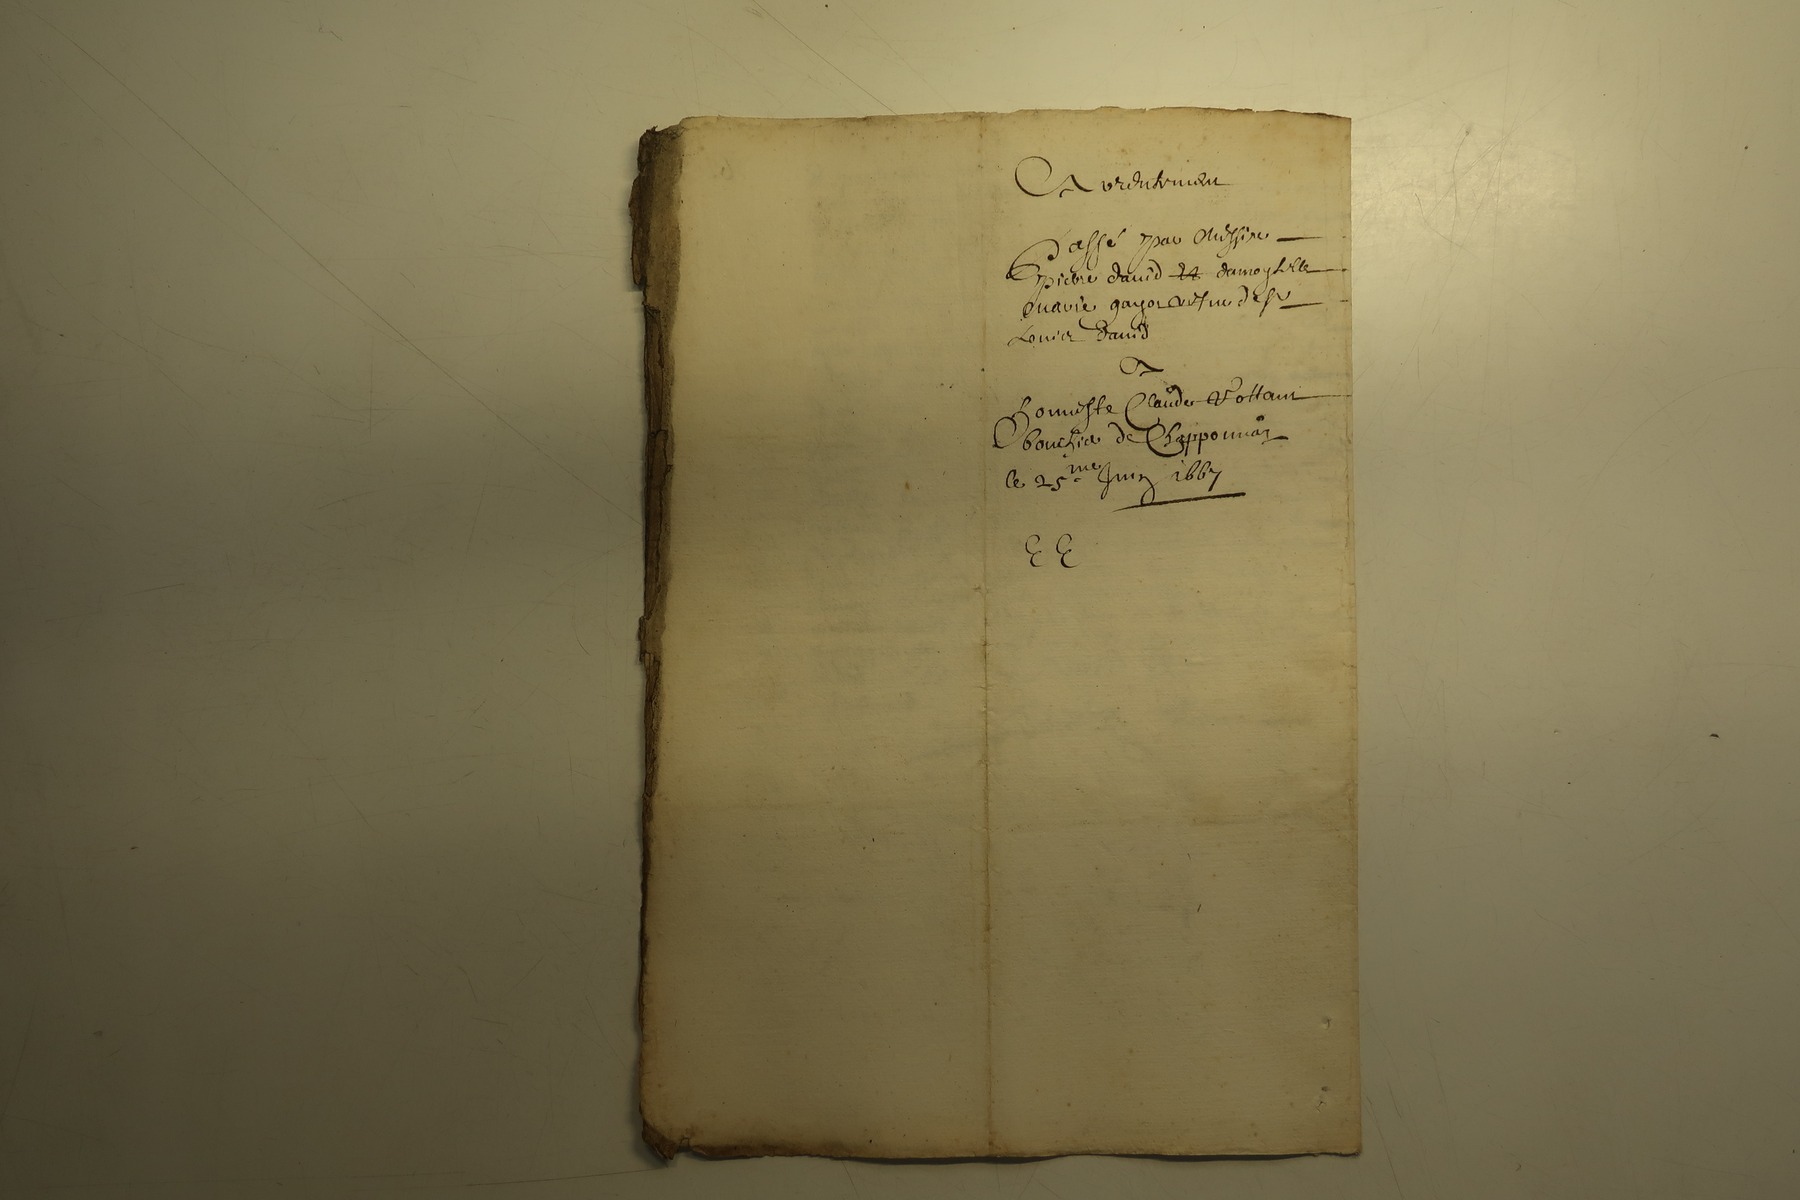 Arrentemen
Passé par Messire
pierre david et damoyselle
marie gayot vefve de fu
Louis david
A
honneste Claude Cottain
bouchier de Chapponnay
le 25me Juin 1667
EE